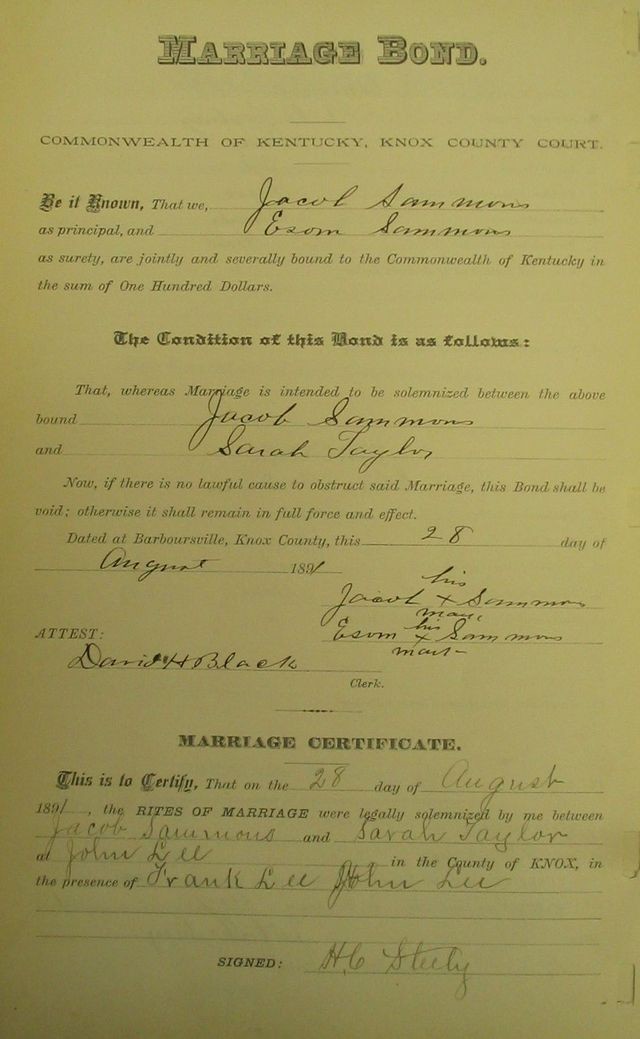 MARRIAGE BOND.
COMMONWEALTH OF KENTUCKY, KNOX COUNTY COURT.
Be it Known, That we, Jacob Sammons
as principal, and Esom Sammons
as surety, are jointly and severally bound to the Commonwealth of Kentucky in
the sum of One Hundred Dollars.
The Condition of this Bond is as follows:
That, whereas Marriage is intended to be solemnized between the above
bound Jacob Sammons
and Sarah Taylor
Now, if there is no lawful cause to obstruct said Marriage, this Bond shall be
void; otherwise it shall remain in full force and effect.
Dated at Barboursville, Knox County, this 28 day of
August 1891
his
Jacob x Sammons
mark
his
ATTEST: Esom x Sammons
mark
David H Black
Clerk.
MARRIAGE CERTIFICATE.
This is to Certify, That on the 28 day of August
1891, the RITES OF MARRIAGE were legally solemnized by me between
Jacob Sammons and Sarah Taylor
at John Lee in the County of KNOX, in
the presence of Frank Lee John Lee
SIGNED: H.C Steely